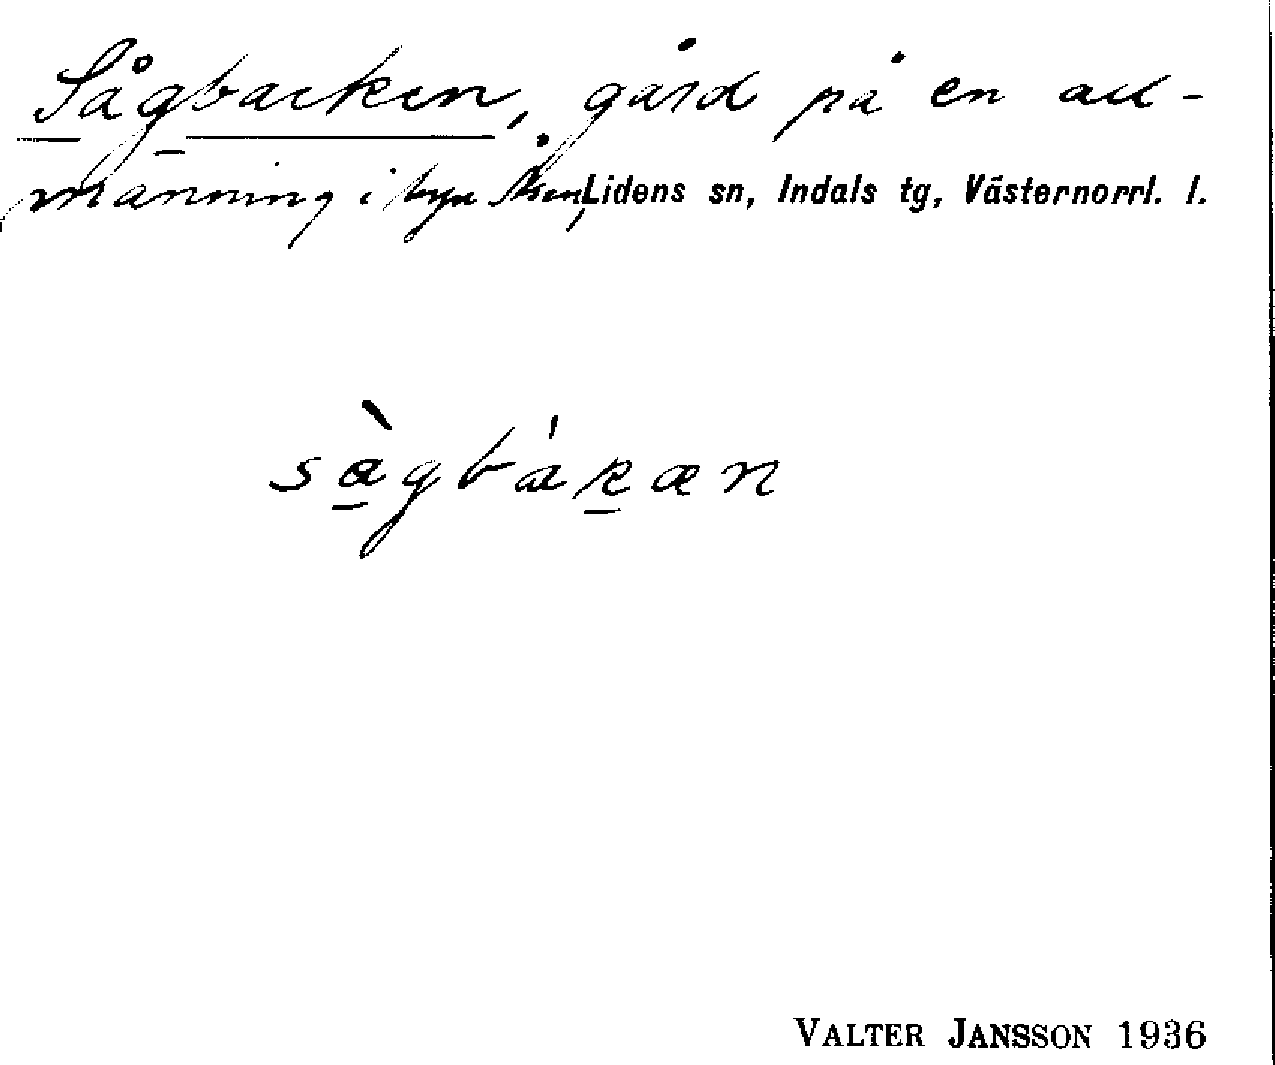 Sågbacken, gård på en all-
männing i byn Åsen, Lidens sn, Indals tg, Västernorrl. l.
sàgbákæn
VALTER JANSSON 1936